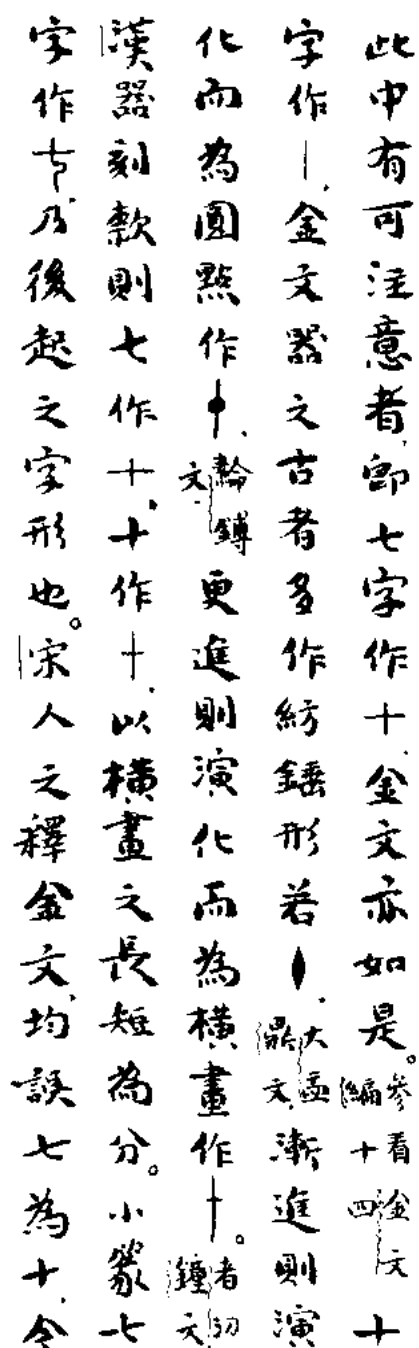 此中有可注意者,即七字作十,金文亦如是。參看金文編十四十
字作丨,金文器之古者多作紡錘形若⬧,大盂鼎文,漸進則演
化而為圓點作,𦅫鎛文,更進則演化而為橫畫作十。者㓚鐘文
漢器刻款則七作十,十作十,以橫畫之長短為分。小篆七
字作,乃後起之字形也。宋人之釋金文,均誤七為十,今